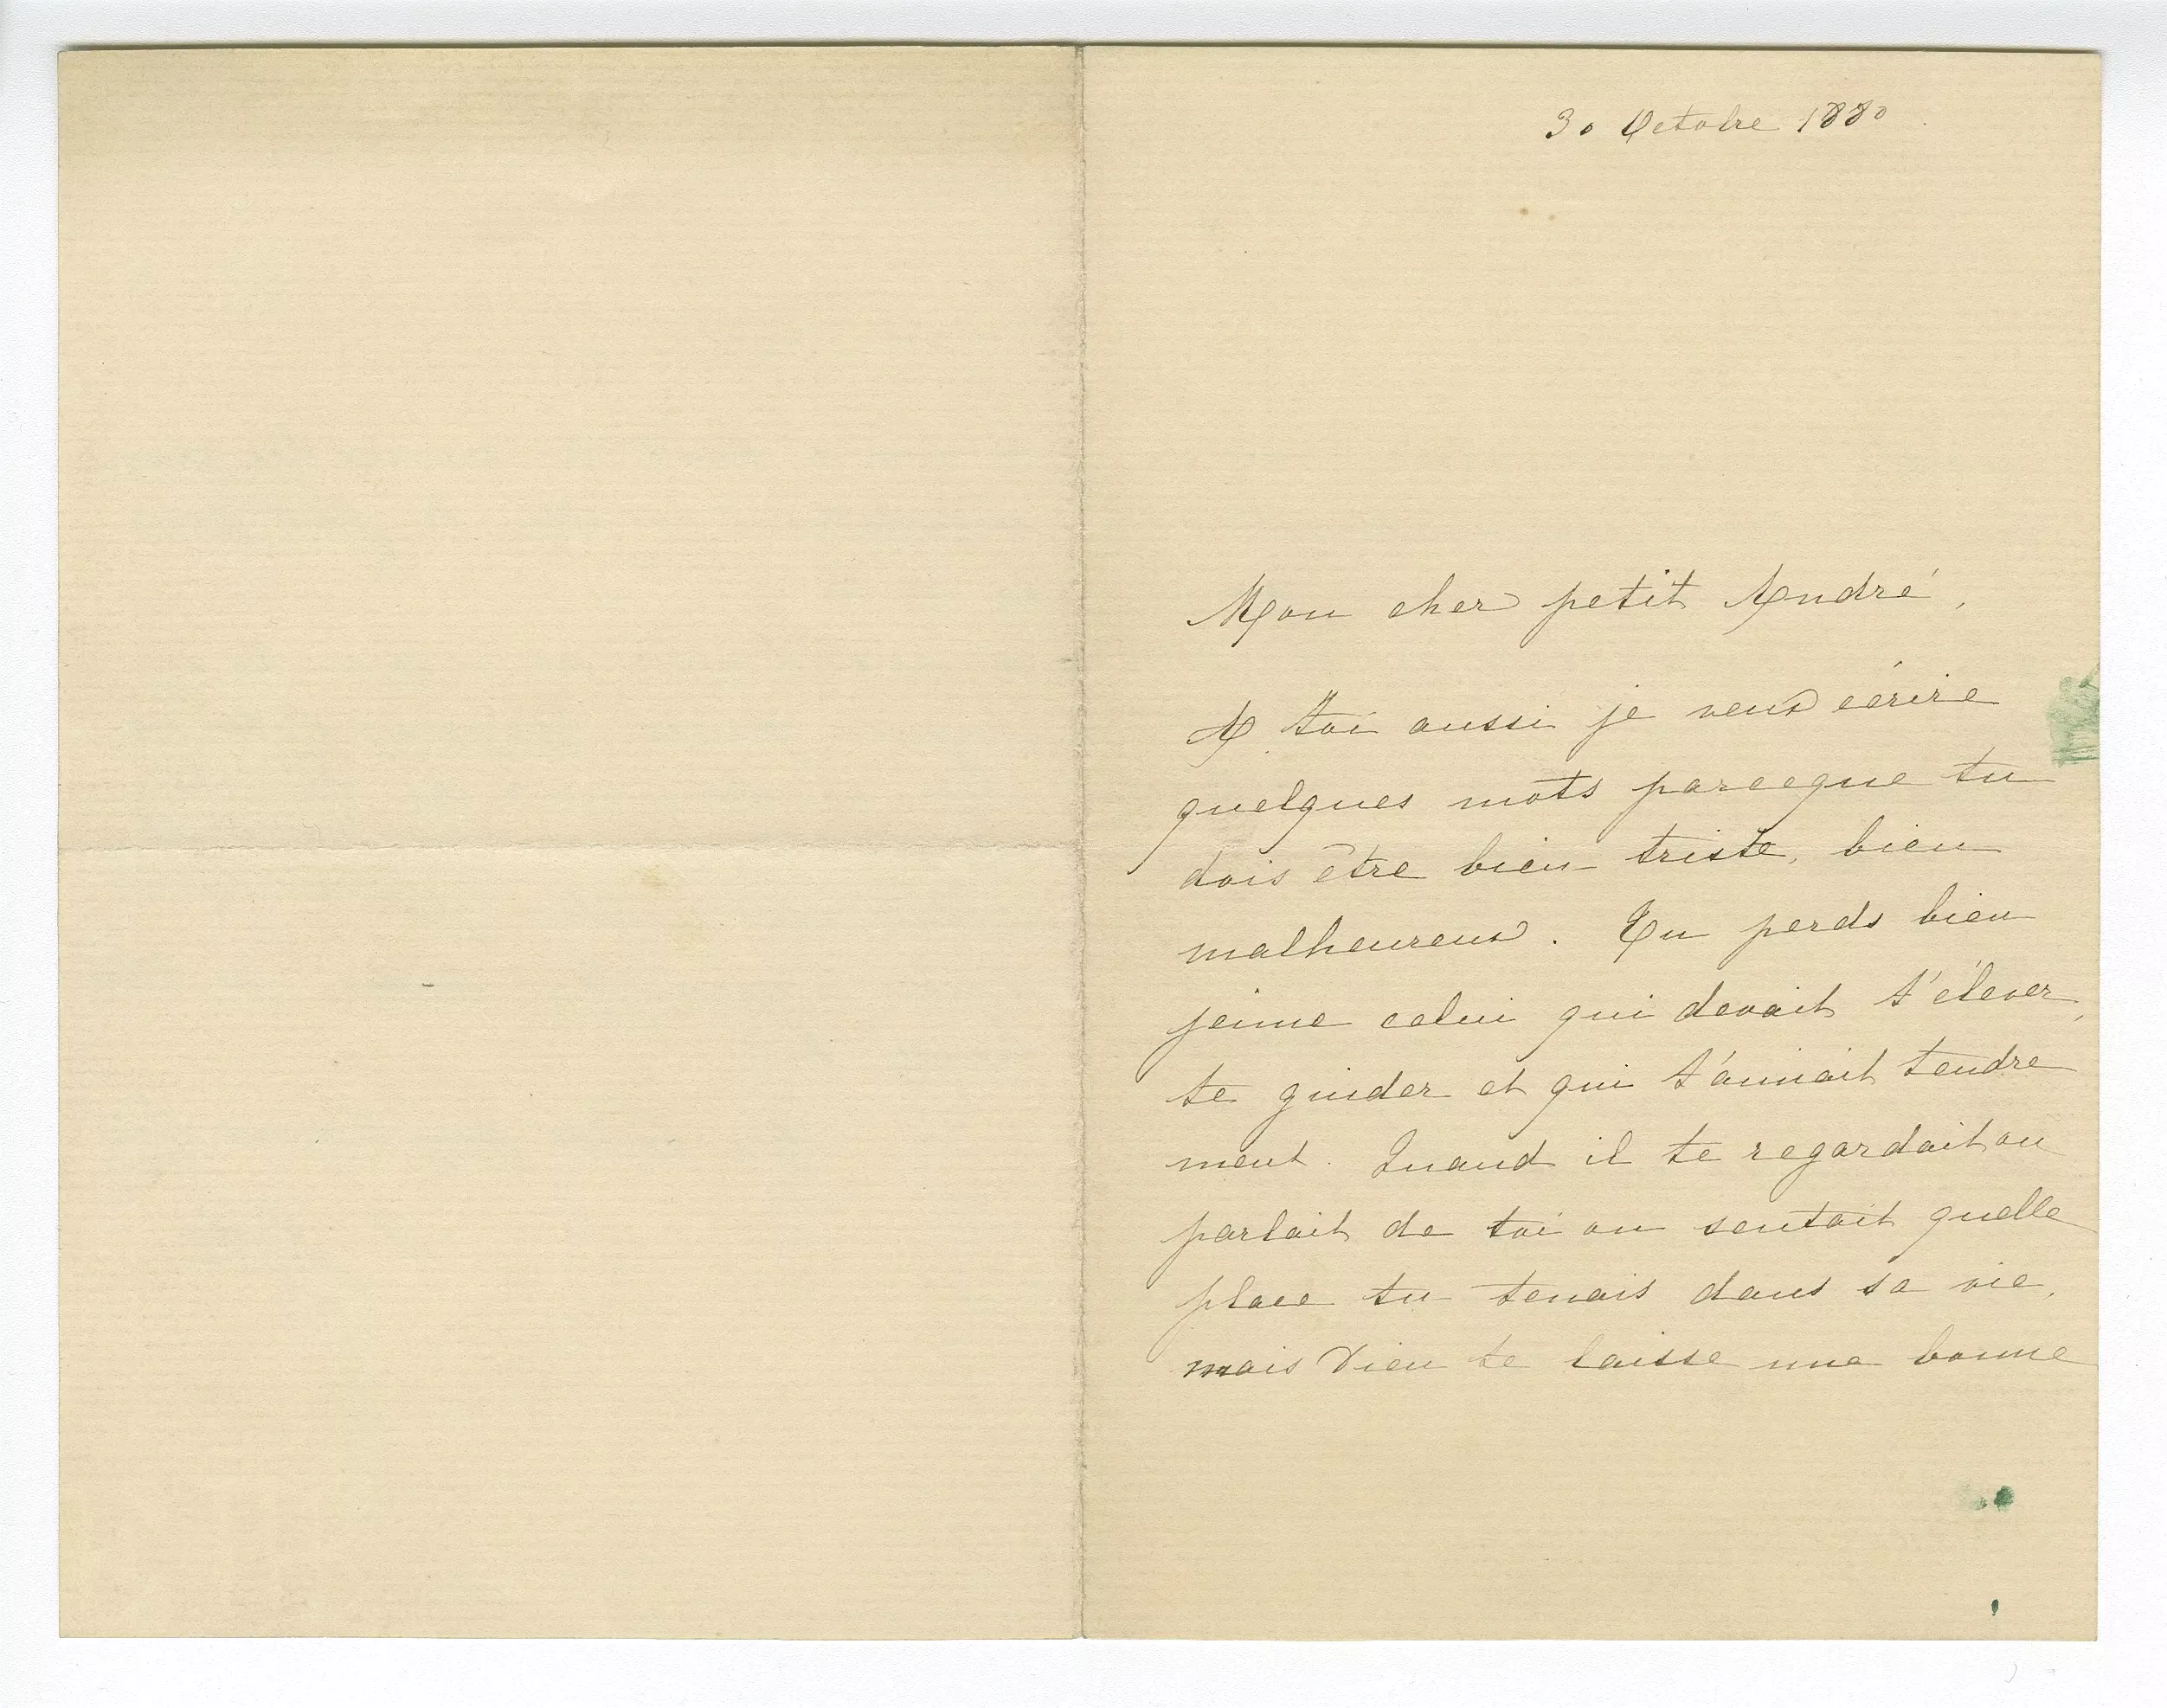 30 Octobre 1880.
Mon cher petit André,
A toi aussi je veux écrire
quelques mots parceque tu
dois être bien triste, bien
malheureux. Tu perds bien
jeune celui qui devait t'élever,
te guider et qui t'aimait tendre
ment. Quand il te regardait ou
parlait de toi on sentait quelle
place tu tenais dans sa vie,
mais Dieu te laisse une bonne